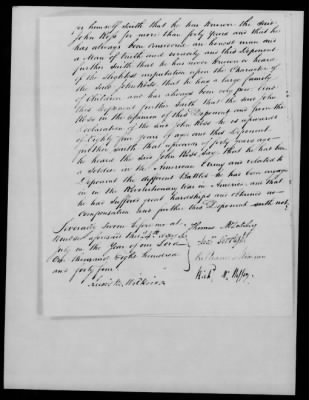 himself saith that he has known the said
John Ross for more than forty years and that he
has always been considered an honest man and
a Man of truth and veracity and this Deponent
further saith that he has never known or heard
of the slightest imputation upon the Character of
the said John Ross that he has a large family
of Children and has always been very poor
this deponent further saith that the said John
Ross in the opinion of this Deponent and from the
declaration of the said John Ross he is upwards
of Eighty five years of age and this Deponent
further saith that upwards of forty years ago
he heard the said John Ross say that he had been
a Soldier in the American Army and related to
Deponent the different Battles he has been engaged
in in the Revolutionary War in America and that
he has suffered great hardships and obtained no
Compensation and further this Deponent saith not
Severally Sworn before me at
aforesaid this 24th day of
in the Year of our Lord
One thousand Eight hundred
and forty four
Thomas
William